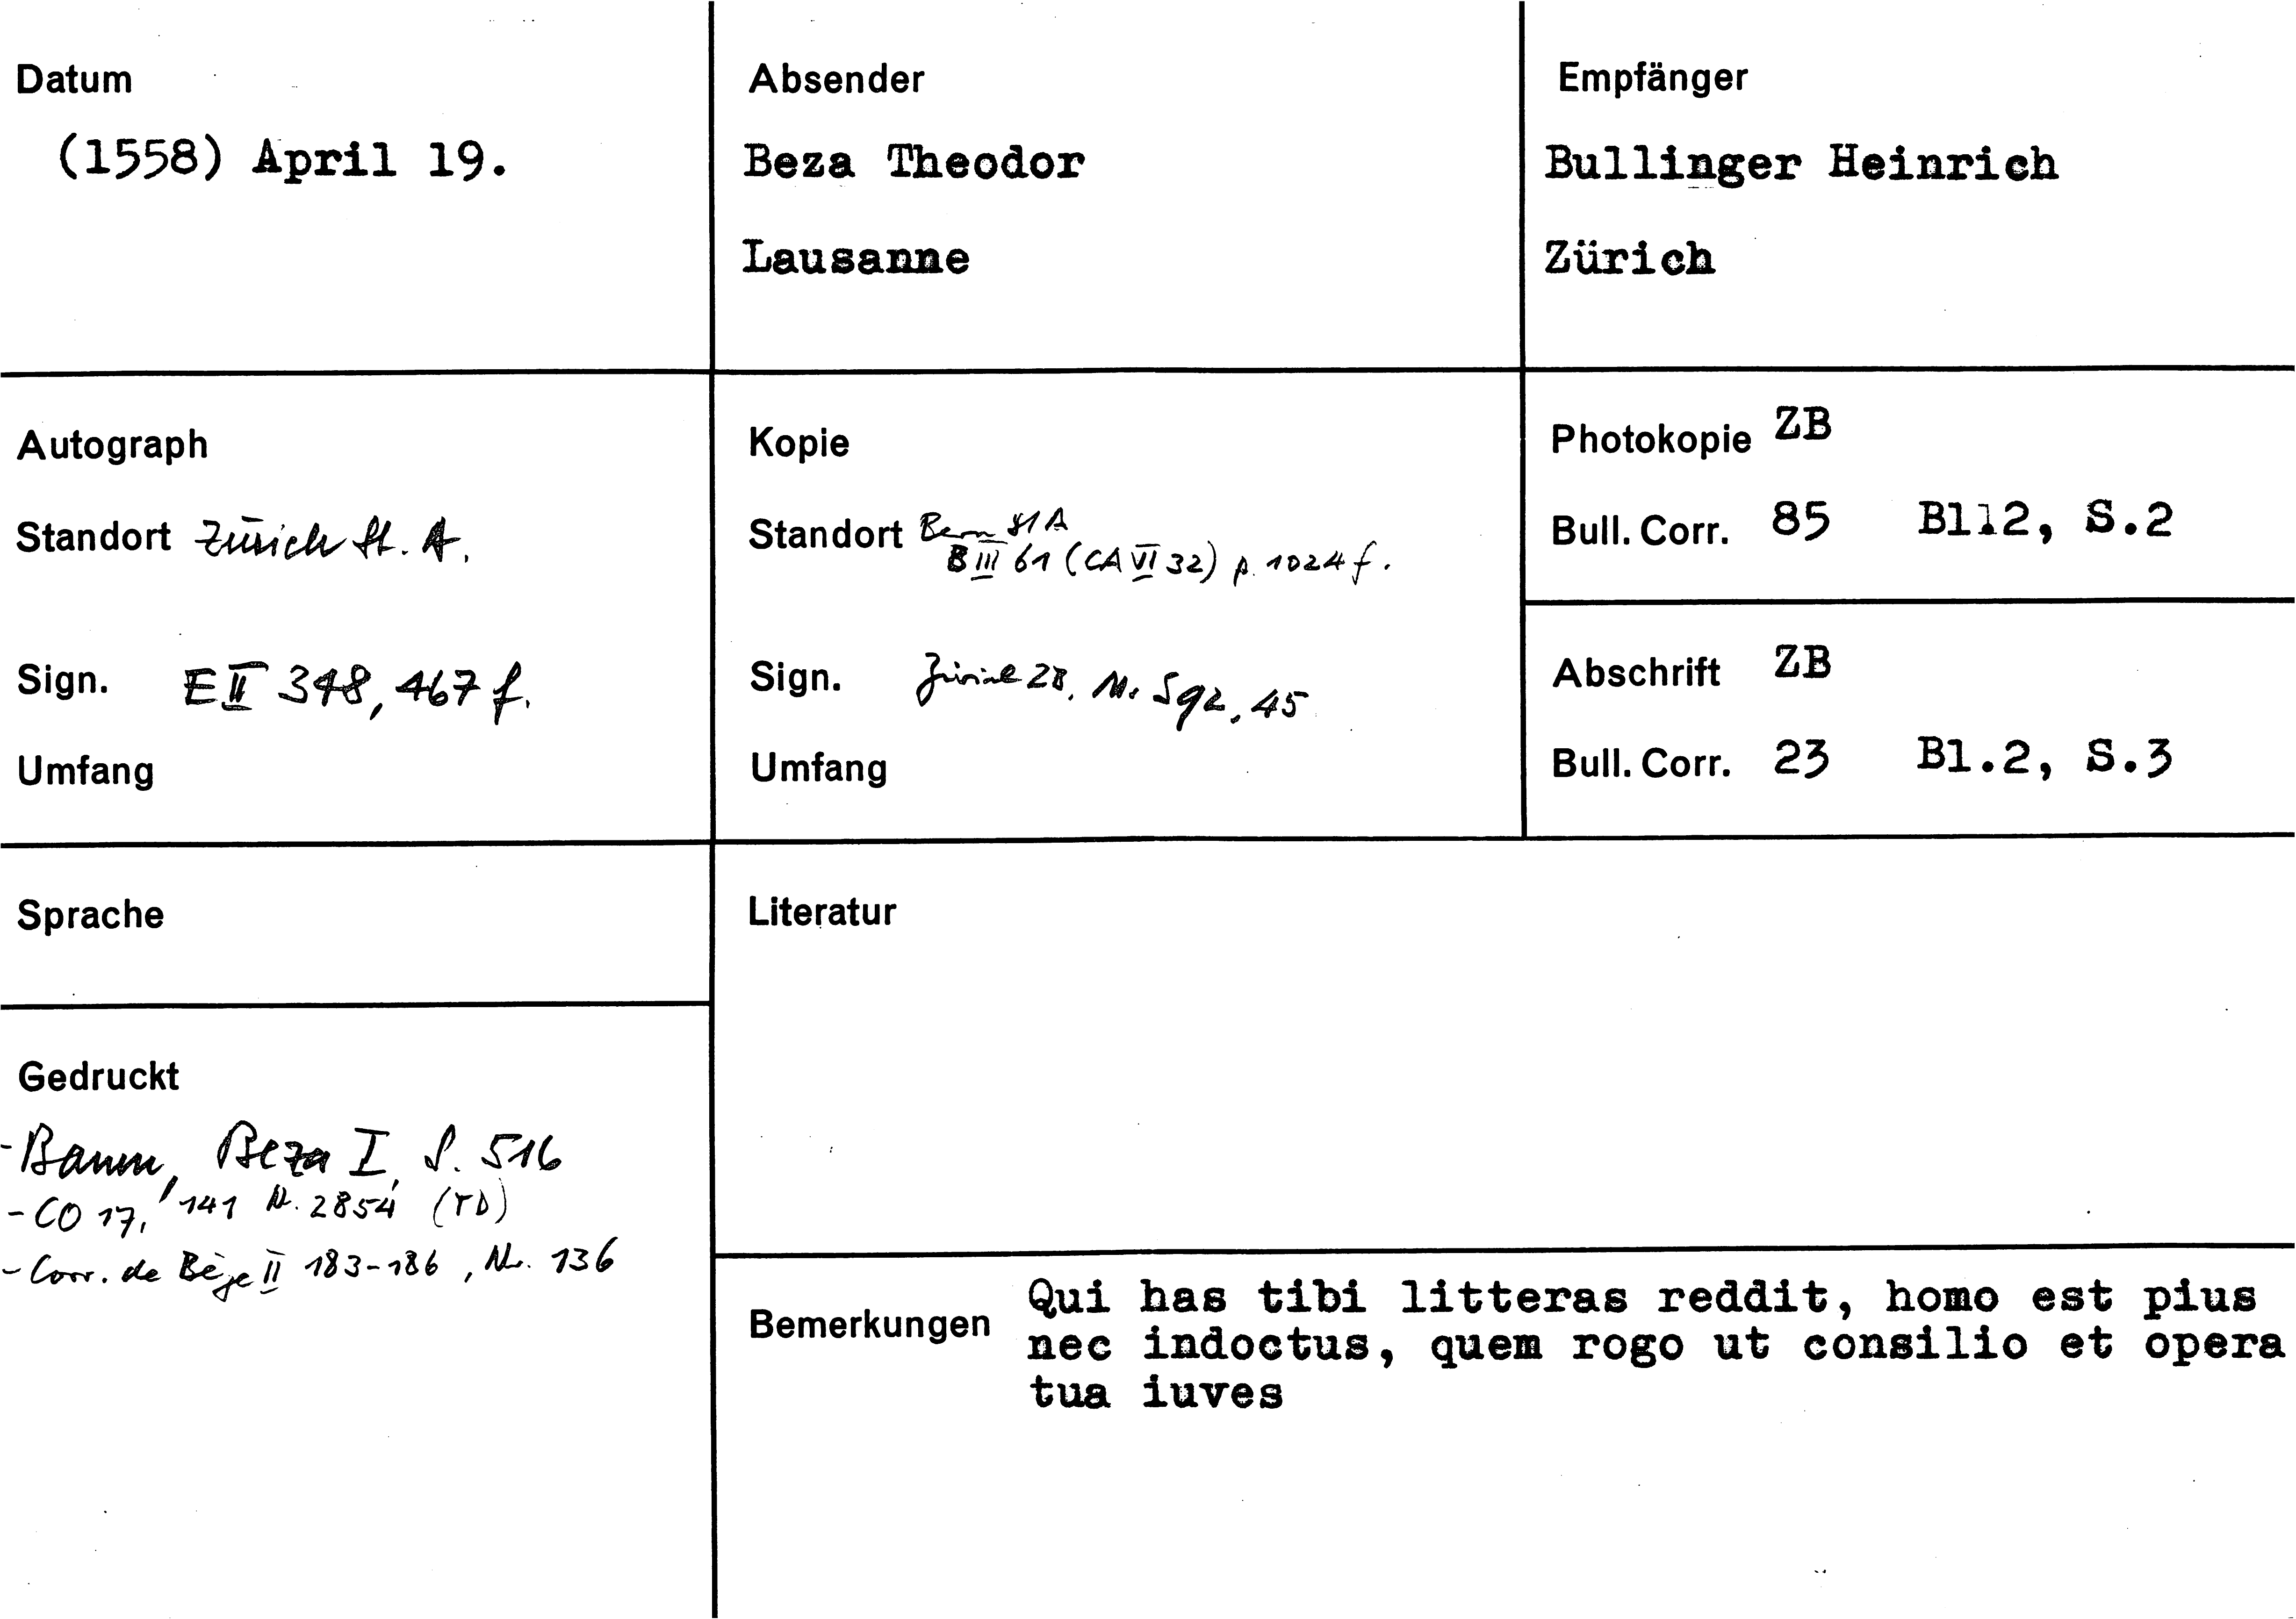 Datum
(1558) April 19.
Absender
Beza Theodor
Lausanne
Empfänger
Bullinger Heinrich
Zürich
Autograph
Standort Zürich St. A.
Sign. E II 348, 467 f.
Umfang
Kopie
Standort Bern StA
B III 61 (CA VI 32) p. 1024 f.
Sign. 28, Ms S 92, 45
Umfang
Photokopie ZB
Bull. Corr. 85 Bl12, S.2
Abschrift ZB
Bull. Corr. 23 Bl.2, S.3
Sprache
Literatur
Gedruckt
- Baum, Beza I, S. 516
- CO 17, 141 Nr. 2854 (TD)
- Corr. de Bèze II 183-186, Nr. 136
Bemerkungen Qui has tibi litteras reddit, homo est pius
nec indoctus, quem rogo ut consilio et opera
tua iuves